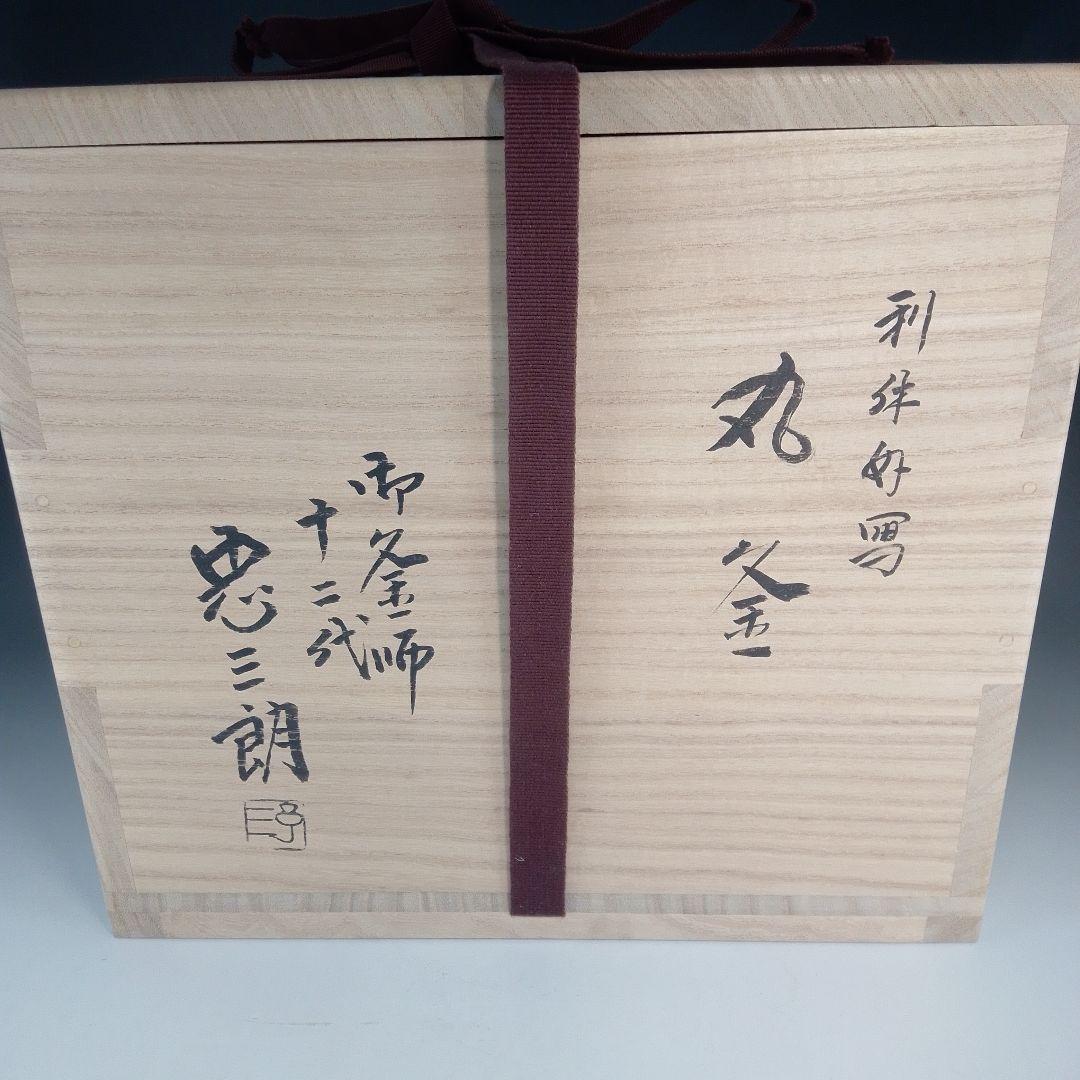 利休好写
丸釜
御釜師
十二代
悪三朗